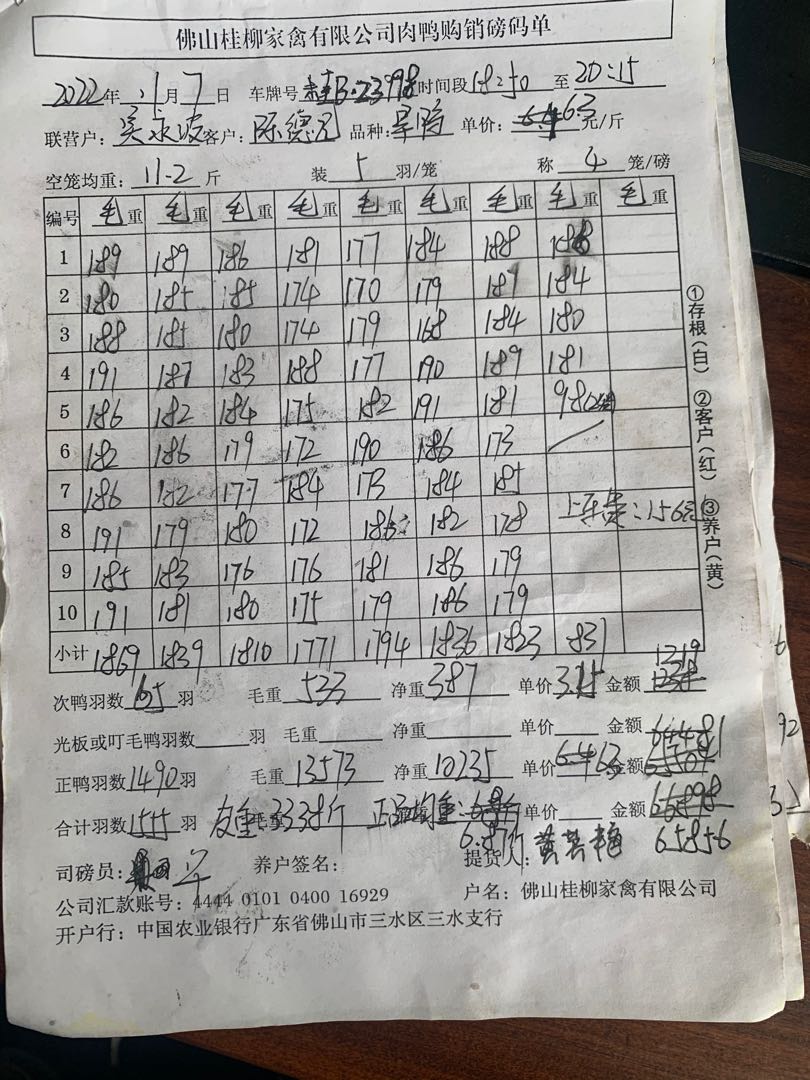 佛山桂柳家禽有限公司肉鸭购销磅码单
2022年 11月 7日 车牌号 桂B·23998 时间段 18:50 至 20:15
联营户: 客户: 陈德 品种: 单价: 6.3 元/斤
空笼均重: 11.2 斤 装 5 羽/笼 称 4 笼/磅
编号 毛重 毛重 毛重 毛重 毛重 毛重 毛重 毛重 毛重
1 189 189 186 181 177 184 188 188
2 180 185 185 174 170 179 187 184
3 188 185 180 174 179 168 184 180
4 191 187 183 188 177 190 189 181
5 186 182 184 175 182 191 181 98
6 182 186 179 172 190 186 173
7 186 182 177 184 173 184 185
8 191 179 180 172 186 182 178 上车费:156元
9 185 183 176 176 181 186 179
10 191 181 180 175 179 186 179
小计 1869 1839 1810 1771 1794 1836 1823 831
次鸭羽数 65 羽 毛重 533 净重 387 单价 金额 1219
光板或叮毛鸭羽数 羽 毛重 净重 单价 金额
正鸭羽数 1490 羽 毛重 13573 净重 10235 单价 6.3 金额 64481
合计羽数 1555 羽 毛重 3338斤 正品均重: 6.87斤 单价 金额 65856
司磅员: 养户签名: 提货人:
公司汇款账号: 4444 0101 0400 16929 户名: 佛山桂柳家禽有限公司
开户行: 中国农业银行广东省佛山市三水区三水支行
①存根(白) ②客户(红) ③养户(黄)